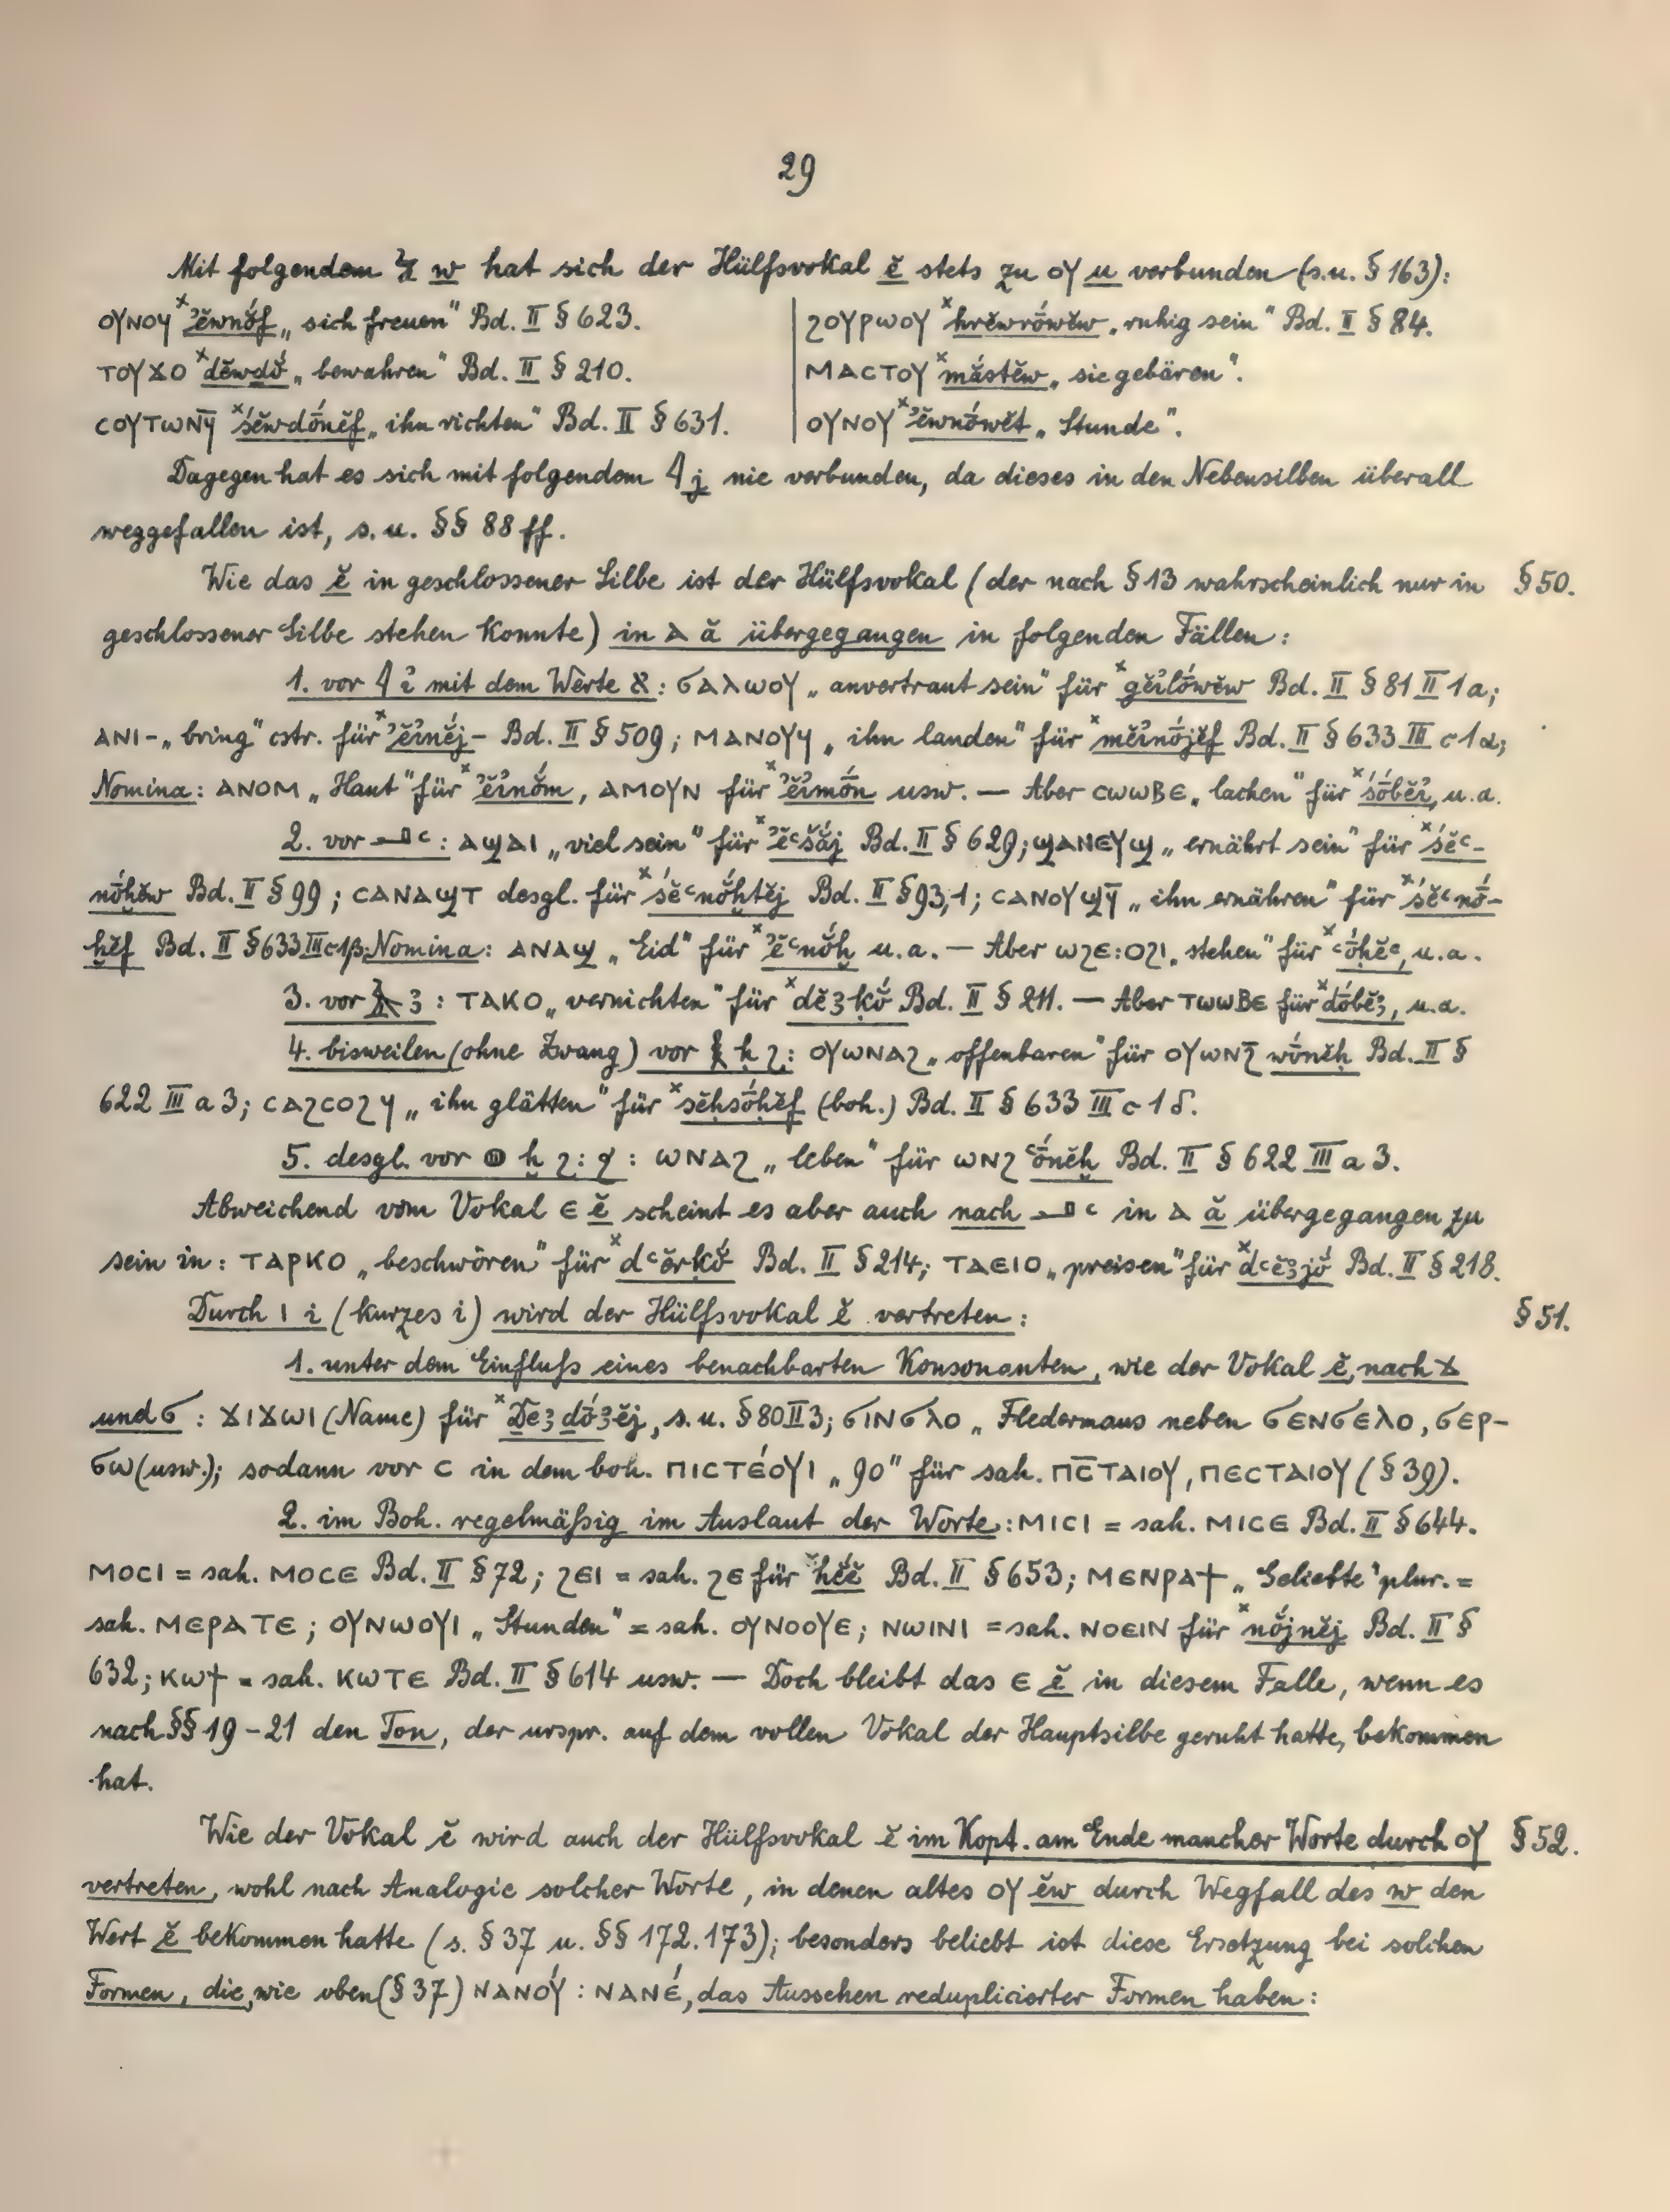 29
Mit folgendem 𓅱 w hat sich der Hülfsvokal ĕ stets zu ⲟⲩ u verbunden (s.u. § 163):
ⲟⲩⲛⲟϥ ˣꜣĕwnŏ́f „sich freuen“ Bd. II § 623.
ⲧⲟⲩϫⲟ ˣdĕwdŏ́ „bewahren“ Bd. II § 210.
ⲥⲟⲩⲧⲱⲛϥ̄ ˣśĕwdṓnĕf „ihn richten“ Bd. II § 631.
ϩⲟⲩⲣⲱⲟⲩ ˣhrĕwrṓwĕw „ruhig sein“ Bd. II § 84.
ⲙⲁⲥⲧⲟⲩ ˣmắstĕw „sie gebären“.
ⲟⲩⲛⲟⲩ ˣꜣĕwnṓwĕt „Stunde“.
Dagegen hat es sich mit folgendem 𓇋 j nie verbunden, da dieses in den Nebensilben überall
weggefallen ist, s.u. §§ 88 ff.
Wie das ĕ in geschlossener Silbe ist der Hülfsvokal (der nach § 13 wahrscheinlich nur in § 50.
geschlossener Silbe stehen konnte) in ⲁ ă übergegangen in folgenden Fällen:
1. vor 𓇋 ꞽ mit dem Werte א: ϭⲁⲗⲱⲟⲩ „anvertraut sein“ für ˣgĕꞽlṓwĕw Bd. II § 81 II 1a;
ⲁⲛⲓ- „bring“ cstr. für ˣꜣĕꞽnĕj- Bd. II § 509; ⲙⲁⲛⲟⲩϥ „ihn landen“ für ˣmĕꞽnṓjĕf Bd. II § 633 III c 1 α;
Nomina: ⲁⲛⲟⲙ „Haut“ für ˣꜣĕꞽnŏ́m, ⲁⲙⲟⲩⲛ für ˣꜣĕꞽmṓn usw. — Aber ⲥⲱⲱⲃⲉ „lachen“ für ˣśṓbĕꞽ, u.a.
2. vor 𓂝 ꜥ: ⲁϣⲁⲓ „viel sein“ für ˣꜣĕꜥšắj Bd. II § 629; ϣⲁⲛⲉⲩϣ „ernährt sein“ für ˣśĕꜥ-
nŏ́ḫĕw Bd. II § 99; ⲥⲁⲛⲁϣⲧ desgl. für ˣśĕꜥnŏ́ḫtĕj Bd. II § 93,1; ⲥⲁⲛⲟⲩϣϥ̄ „ihn ernähren“ für ˣśĕꜥnṓ-
ḫĕf Bd. II § 633 III c 1 β. Nomina: ⲁⲛⲁϣ „Eid“ für ˣꜣĕꜥnŏ́ḫ u.a. — Aber ⲱϩⲉ:ⲟϩⲓ „stehen“ für ˣꜥṓḥĕꜥ, u.a.
3. vor 𓄿 ꜣ: ⲧⲁⲕⲟ „vernichten“ für ˣdĕꜣḳŏ́ Bd. II § 211. — Aber ⲧⲱⲱⲃⲉ für ˣdṓbĕꜣ, u.a.
4. bisweilen (ohne Zwang) vor 𓎛 ḥ ϩ: ⲟⲩⲱⲛⲁϩ „offenbaren“ für ⲟⲩⲱⲛϩ̄ wṓnĕḥ Bd. II §
622 III a 3; ⲥⲁϩⲥⲟϩϥ „ihn glätten“ für ˣsĕḥsŏ́ḥĕf (boh.) Bd. II § 633 III c 1 δ.
5. desgl. vor 𓐍 ḫ ϩ: ϧ: ⲱⲛⲁϩ „leben“ für ⲱⲛϩ ꜥṓnĕḫ Bd. II § 622 III a 3.
Abweichend vom Vokal ⲉ ĕ scheint es aber auch nach 𓂝 ꜥ in ⲁ ă übergegangen zu
sein in: ⲧⲁⲣⲕⲟ „beschwören“ für ˣdꜥĕrḳŏ́ Bd. II § 214; ⲧⲁⲉⲓⲟ „preisen“ für ˣdꜥĕꜣjŏ́ Bd. II § 218.
Durch ⲓ i (kurzes i) wird der Hülfsvokal ĕ vertreten: § 51.
1. unter dem Einfluſs eines benachbarten Konsonanten, wie der Vokal ĕ, nach ϫ
und ϭ: ϫⲓϫⲱⲓ (Name) für ˣDeꜣdṓꜣĕj, s.u. § 80 II 3; ϭⲓⲛϭⲗⲟ „Fledermaus neben ϭⲉⲛϭⲉⲗⲟ, ϭⲉⲣ-
ϭⲱ (usw.); sodann vor ⲥ in dem boh. ⲡⲓⲥⲧⲉ́ⲟⲩⲓ „90“ für sah. ⲡⲥ̄ⲧⲁⲓⲟⲩ, ⲡⲉⲥⲧⲁⲓⲟⲩ (§ 39).
2. im Boh. regelmäſsig im Auslaut der Worte: ⲙⲓⲥⲓ = sah. ⲙⲓⲥⲉ Bd. II § 644.
ⲙⲟⲥⲓ = sah. ⲙⲟⲥⲉ Bd. II § 72; ϩⲉⲓ = sah. ϩⲉ für Bd. II § 653; ⲙⲉⲛⲣⲁϯ „Geliebte“ plur. =
sah. ⲙⲉⲣⲁⲧⲉ; ⲟⲩⲛⲱⲟⲩⲓ „Stunden“ = sah. ⲟⲩⲛⲟⲟⲩⲉ; ⲛⲱⲓⲛⲓ = sah. ⲛⲟⲉⲓⲛ für ˣnŏ́jnĕj Bd. II §
632; ⲕⲱϯ = sah. ⲕⲱⲧⲉ Bd. II § 614 usw. — Doch bleibt das ⲉ ĕ in diesem Falle, wenn es
nach §§ 19-21 den Ton, der urspr. auf dem vollen Vokal der Hauptsilbe geruht hatte, bekommen
hat.
Wie der Vokal ĕ wird auch der Hülfsvokal ĕ im Kopt. am Ende mancher Worte durch ⲟⲩ § 52.
vertreten, wohl nach Analogie solcher Worte, in denen altes ⲟⲩ ĕw durch Wegfall des w den
Wert ĕ bekommen hatte (s. § 37 u. §§ 172.173); besonders beliebt ist diese Ersetzung bei solchen
Formen, die, wie oben (§ 37) ⲛⲁⲛⲟⲩ́ : ⲛⲁⲛⲉ́, das Aussehen reduplicierter Formen haben: